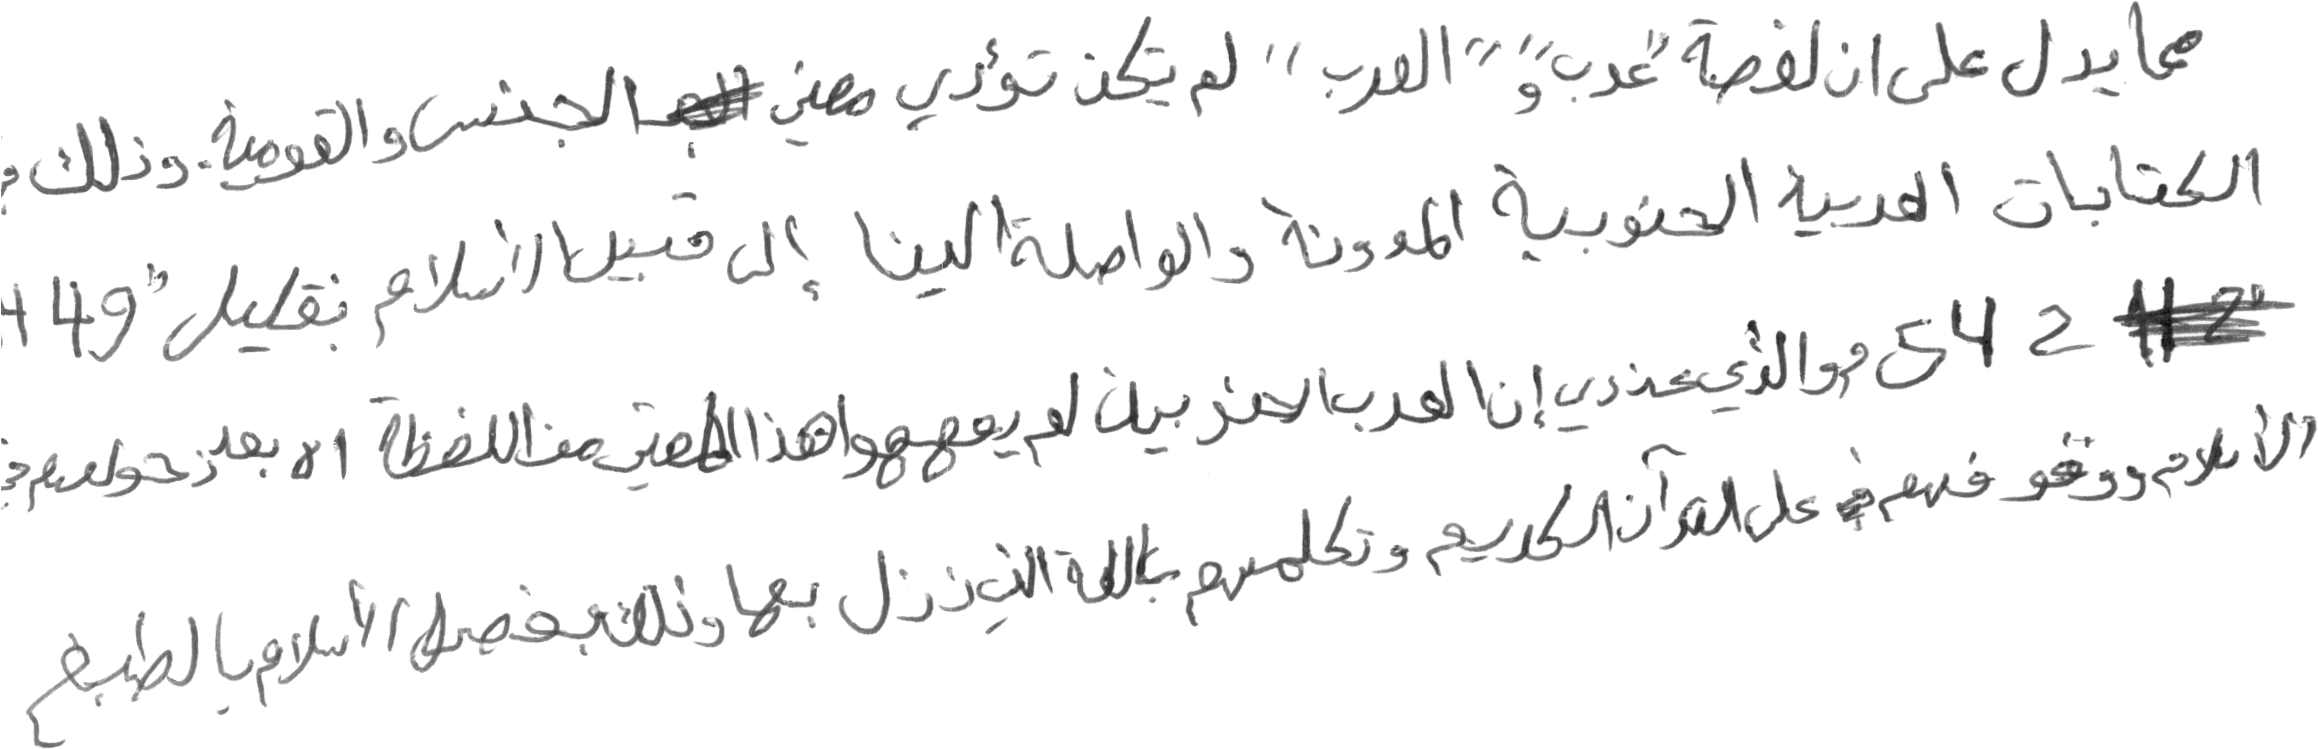 مما يدل على ان لفصة "عرب" و "العرب" لم يكن تؤدي معنى الجنس والقومية. وذلك
الكتابات العربية الجنوبية المدونة والواصلة الينا إلى قبيل الأسلام بقليل "449
ح 54 م والذي عندي إن العرب الجنوبيين لم يفهموا هذا المعنى من اللفظة الا بعد
الأسلام ووقو فهم على القرآن الكريم وتكلمهم باللغة التي نزل بها وذلك بفضل الأسلام بالطبع